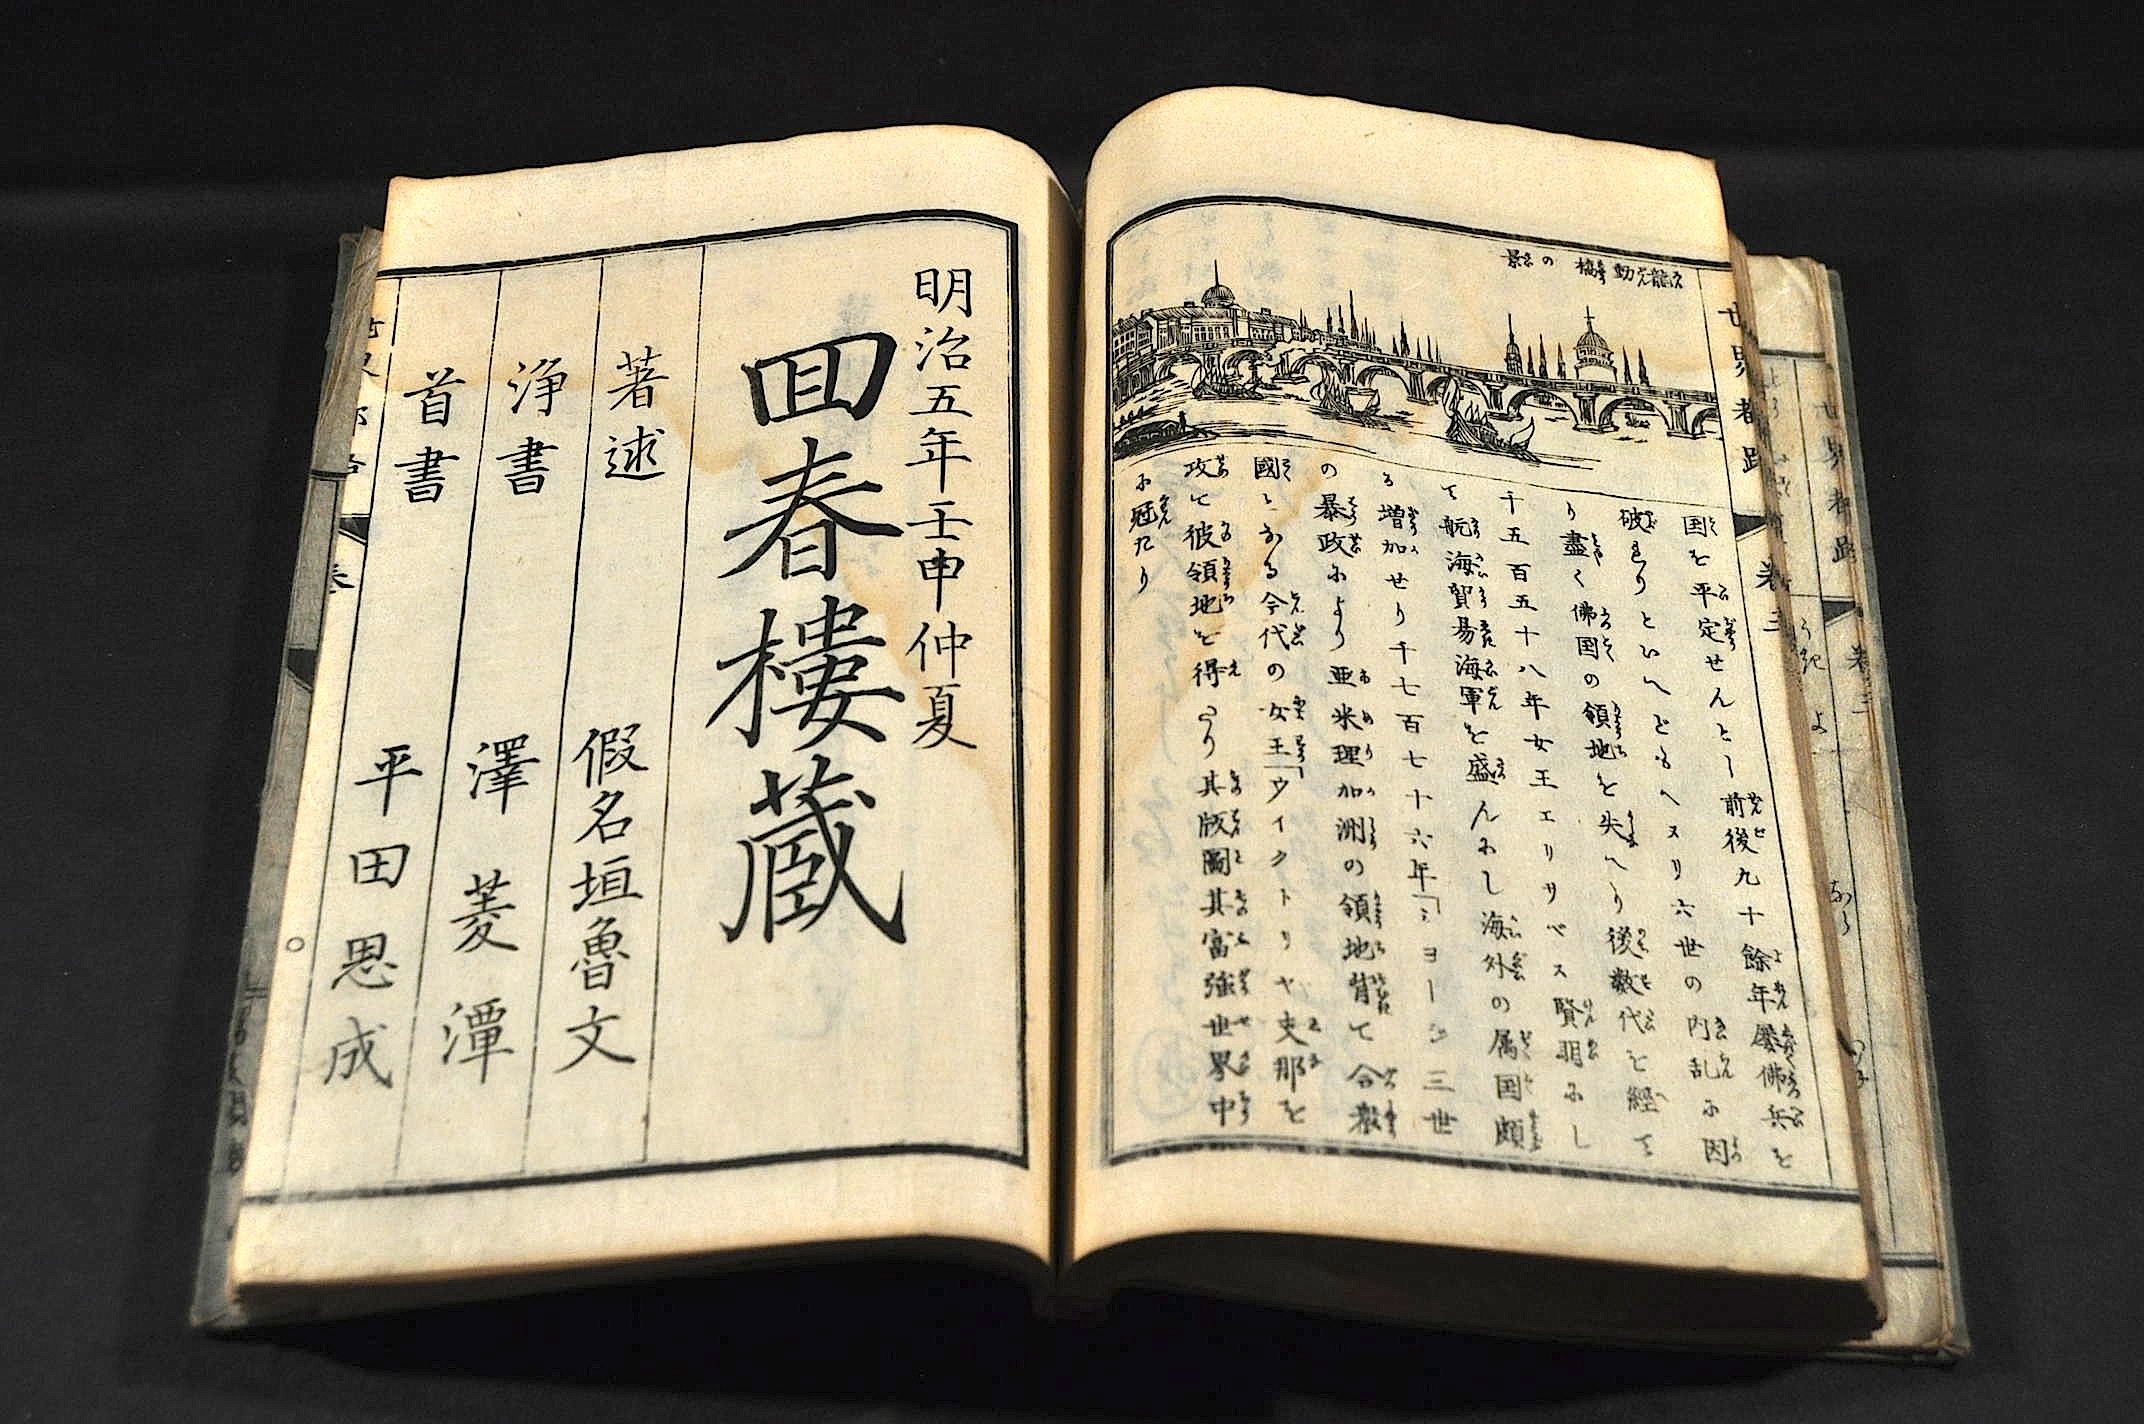 龍動橋の景
国を平定せんとし前後九十餘年屡佛兵を
破れりといへどもヘヌリ六世の内乱に因
り盡く佛国の領地を失へり後数代を經て
千五百五十八年女王エリサベス賢明にし
て航海貿易海軍を盛んにし海外の属国頗
る増加せり千七百七十六年「ジヨージ三世
の暴政により亜米理加洲の領地背て合衆
國となる今代の女王「ウイクトリヤ支那を
政て彼領地を得たり其版圖其富強世界中
に冠たり
世界都路 巻三
明治五年壬申仲夏
回春樓蔵
著述 假名垣魯文
浄書 澤菱潭
首書 平田思成